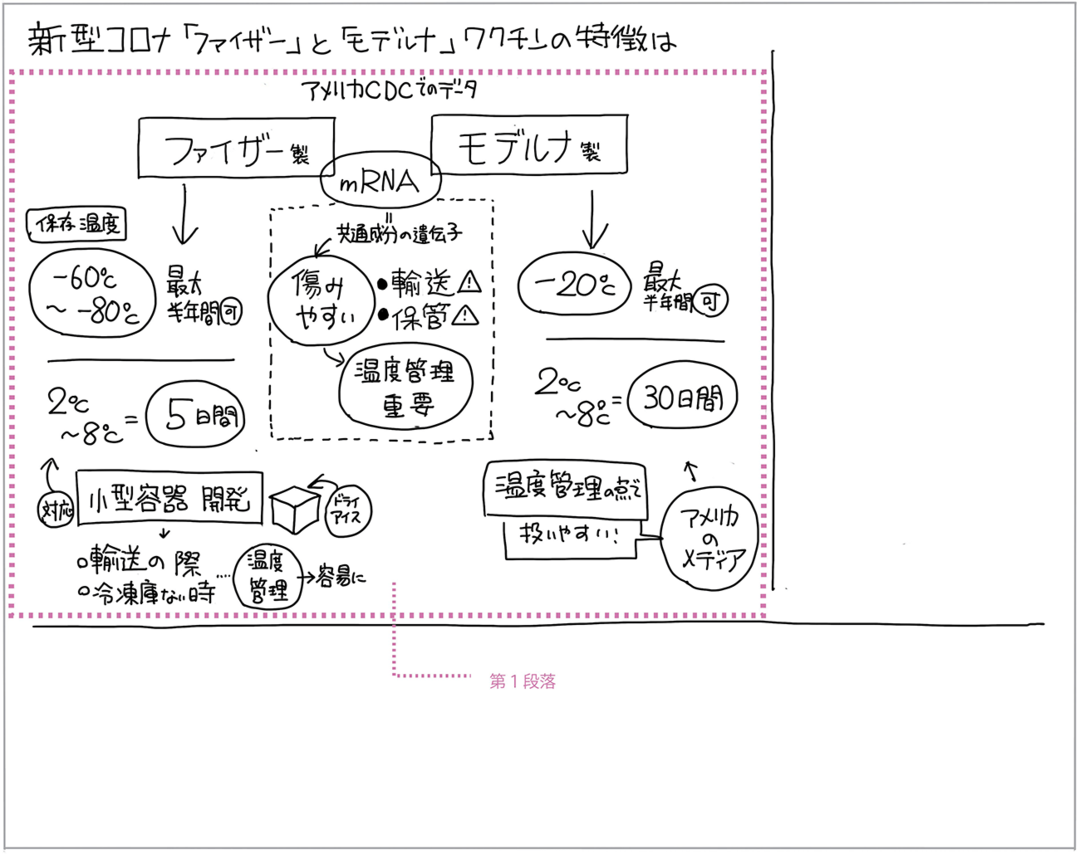 新型コロナ「ファイザー」と「モデルナ」ワクチンの特徴は
アメリカCDCでのデータ
ファイザー製
モデルナ製
mRNA
=
共通成分の遺伝子
保存温度
-60℃
〜-80℃
最大
半年間可
傷み
やすい
・輸送⚠
・保管⚠
温度管理
重要
-20℃
最大
半年間可
2℃
〜8℃=5日間
2℃
〜8℃=30日間
対応
小型容器 開発
ドライ
アイス
○輸送の際
○冷凍庫ない時
……
温度
管理
→容易に
温度管理の点で
扱いやすい!
アメリカ
の
メディア
第1段落